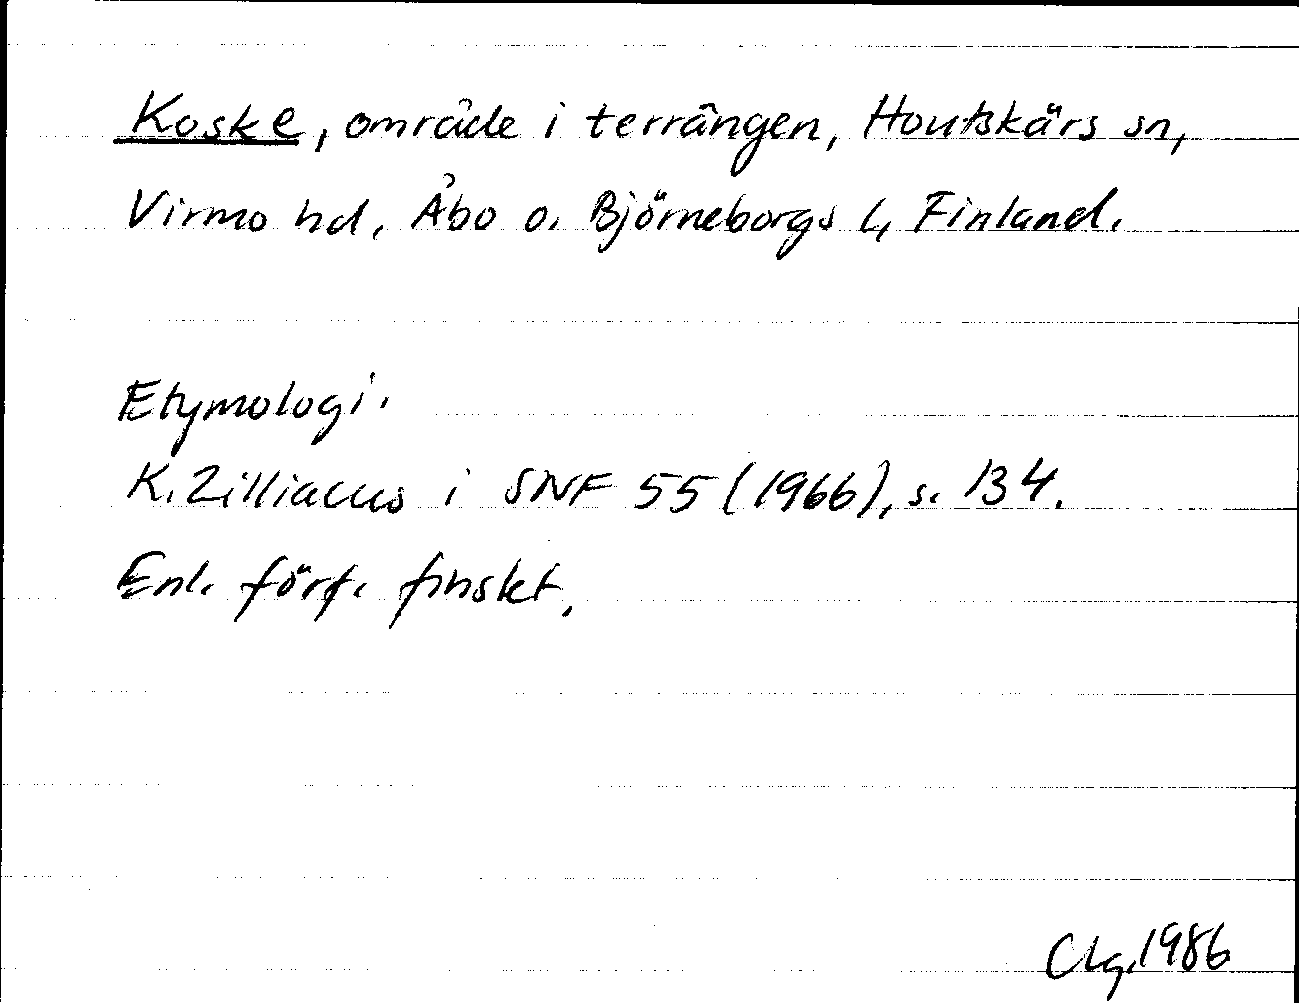 Koske, område i terrängen, Houtskärs sn,
Virmo hd, Åbo o. Björneborgs l, Finland.
Etymologi.
K. Zilliacus i SNF 55 (1966), s. 134.
Enl. förf. finskt.
Clg. 1986